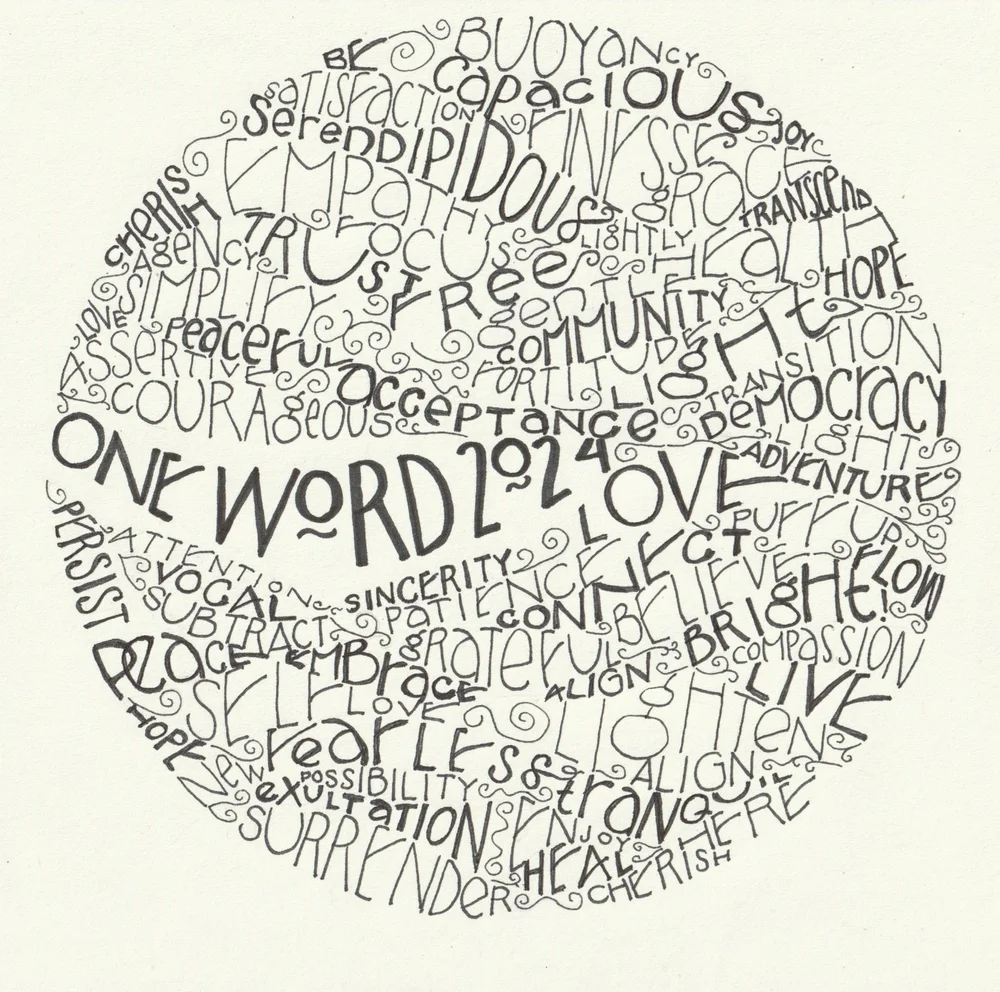 BUOYANCY
BE
CAPACIOUS
SATISFACTION
JOY
SERENDIPIDOUS
FINESSE
EMPATHY
GRACE
TRANSCEND
CHERISH
TRUST
FOCUS
LIGHTLY
HEALTH
AGENCY
FREE
HOPE
SIMPLIFY
GENTLE
COMMUNITY
LOVE
PEACEFUL
LIGHT
TRANSITION
ASSERTIVE
FORTITUDE
COURAGEOUS
ACCEPTANCE
DEMOCRACY
LIGHT
ONE WORD 2024
LOVE
ADVENTURE
PERSIST
ATTENTION
RUFF UP
VOCAL
SINCERITY
CONNECT
FLOW
SUBTRACT
PATIENCE
BELIEVE
BRIGHE!
PEACE
EMBRACE
GRATEFUL
COMPASSION
SELF LOVE
ALIGN
LIVE
HOPE
LIGHTEN
FEARLESS
NEW
POSSIBILITY
ALIGN
EXULTATION
TRANQUIL
SURRENDER
ENJOY
HERE
HEAL
CHERISH